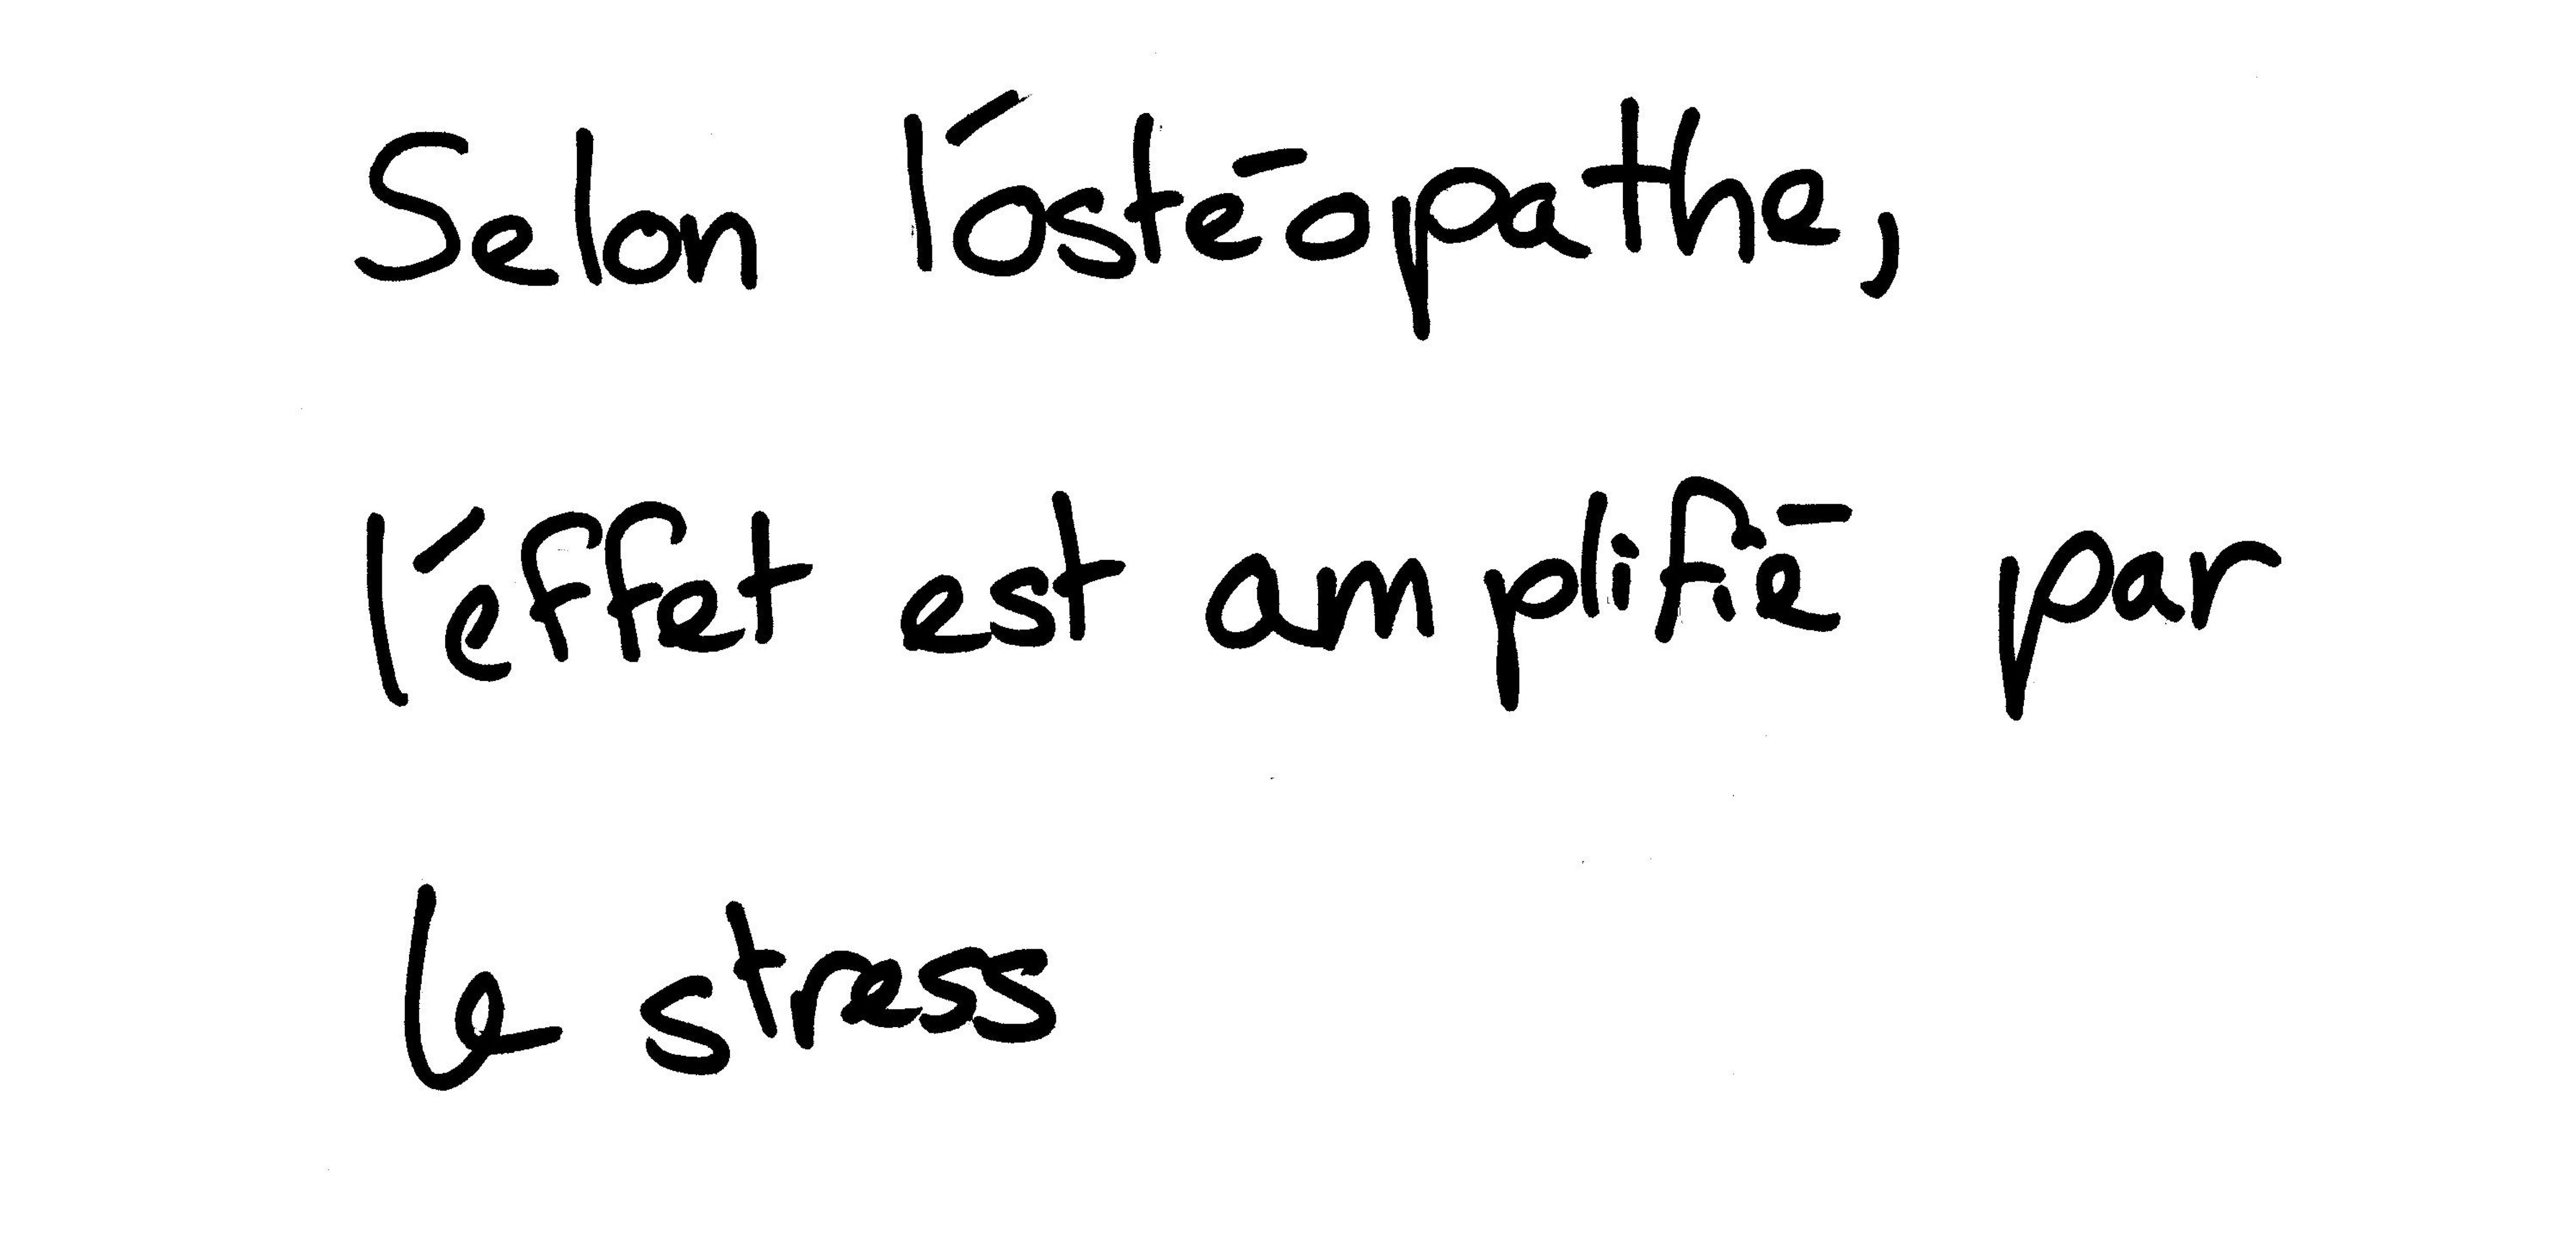 Selon l'ostéopathe,
l'effet est amplifié par
le stress